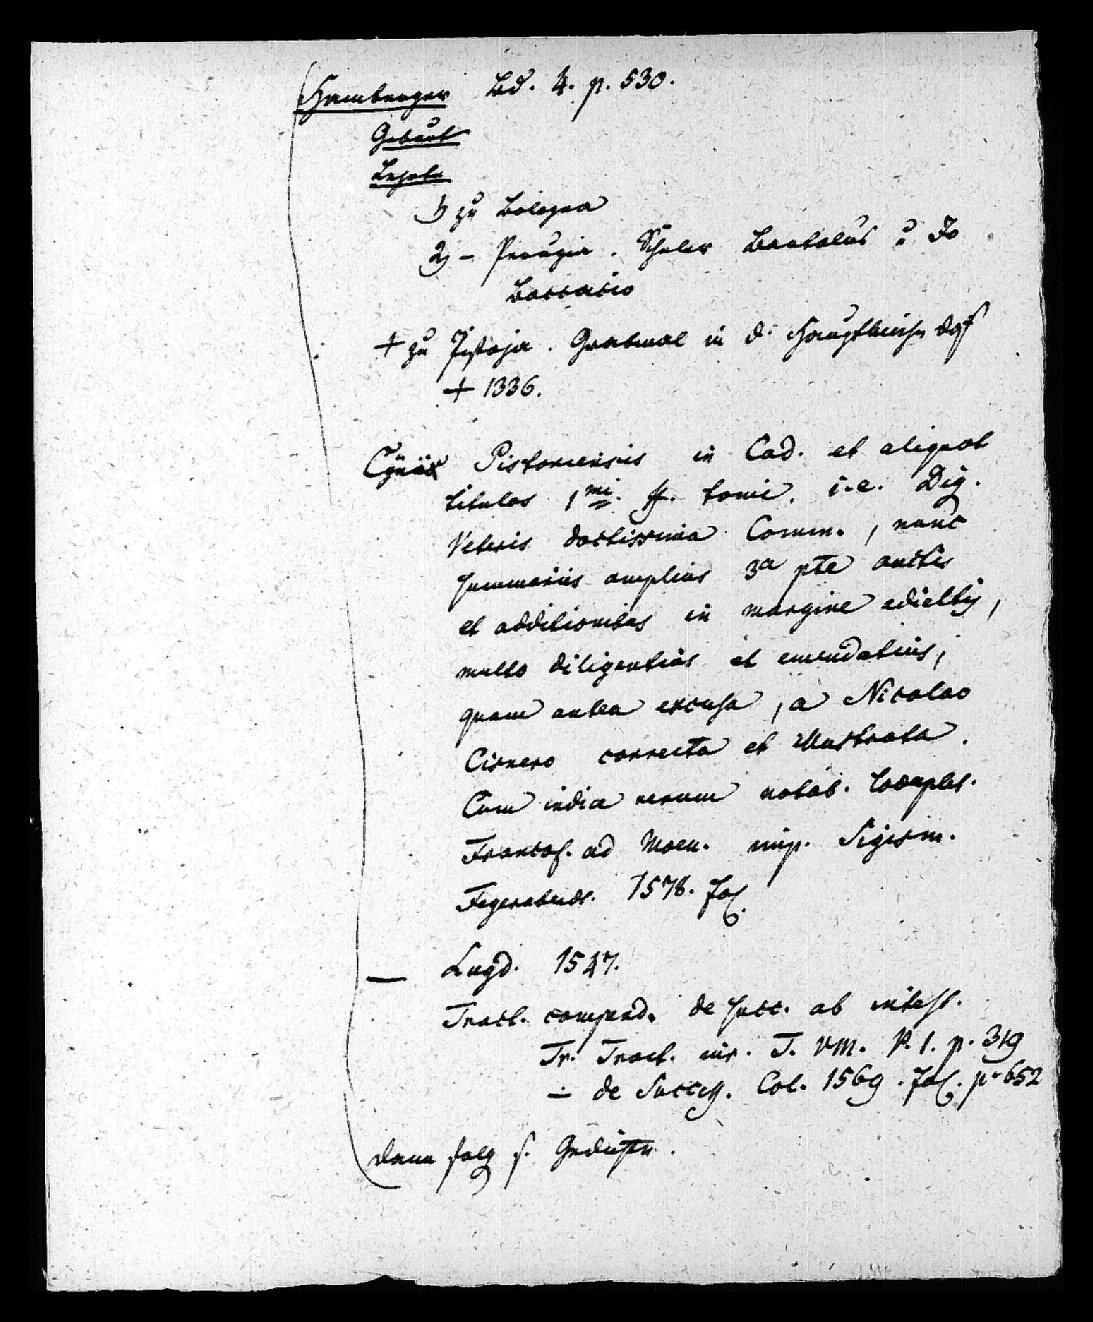 Hamberger Bd. 4. p. 530.
Geburt
Lehrte
1) zu Bologna
2) – Perugia. Schüler Bartolus u Jo
Boccacio
+ zu Pistoja. Grabmal in d. Hauptkirche das.
+ 1336.
Cynus Pistoriensis in Cod. et aliquot
titulos 1mi ff. tomi. i.e. Dig.
Veteris doctissima Comm., nunc
summariis amplius 3a pte auctis
et additionibus in margine adiectis,
multo diligentius et emendatius,
quam antea excusa, a Nicolao
Cisnero correcta et illustrata.
Cum indice rerum notab. locuplet.
Francof. ad Moen. imp. Sigism.
Feyerabend. 1578. fol.
— Lugd. 1547.
Tract. compend. de succ. ab intest.
Tr. Tract. iur. T. VIII. P. 1. p. 319
– de Success. Col. 1569. fol. p. 652
dann folg s. Gedichte.